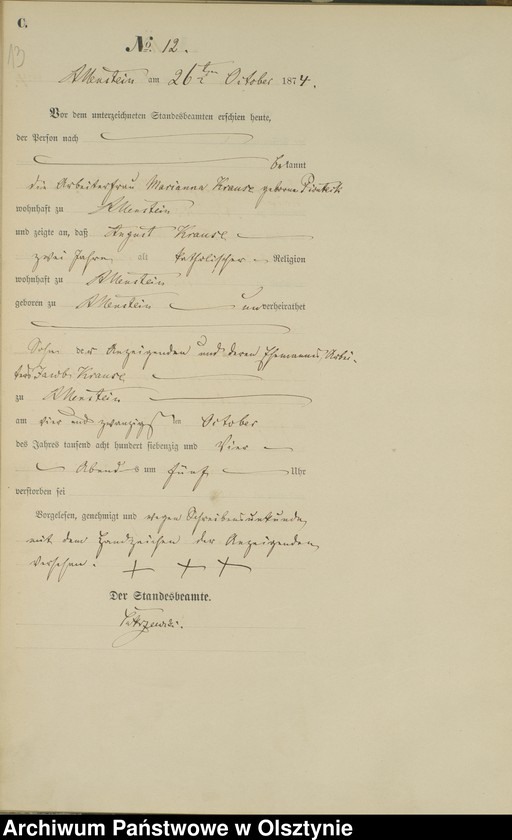 C.
13
No. 12.
Allenstein am 26ten October 1874.
Vor dem unterzeichneten Standesbeamten erschien heute,
der Person nach
bekannt
die Arbeiterfrau Marianna Krause geborne
wohnhaft zu Allenstein
und zeigte an, daß August Krause
zwei Jahre alt katholischer Religion
wohnhaft zu Allenstein
geboren zu Allenstein unverheirathet
Sohn der Anzeigenden und deren Ehemannes Arbei-
ters Jacob Krause
zu Allenstein
am vier und zwanzigsten October
des Jahres tausend acht hundert siebenzig und vier
Abends um fünf Uhr
verstorben sei
Vorgelesen, genehmigt und wegen Schreibensunkunde
mit dem Handzeichen der Anzeigenden
versehen. + + +
Der Standesbeamte.
Archiwum Państwowe w Olsztynie